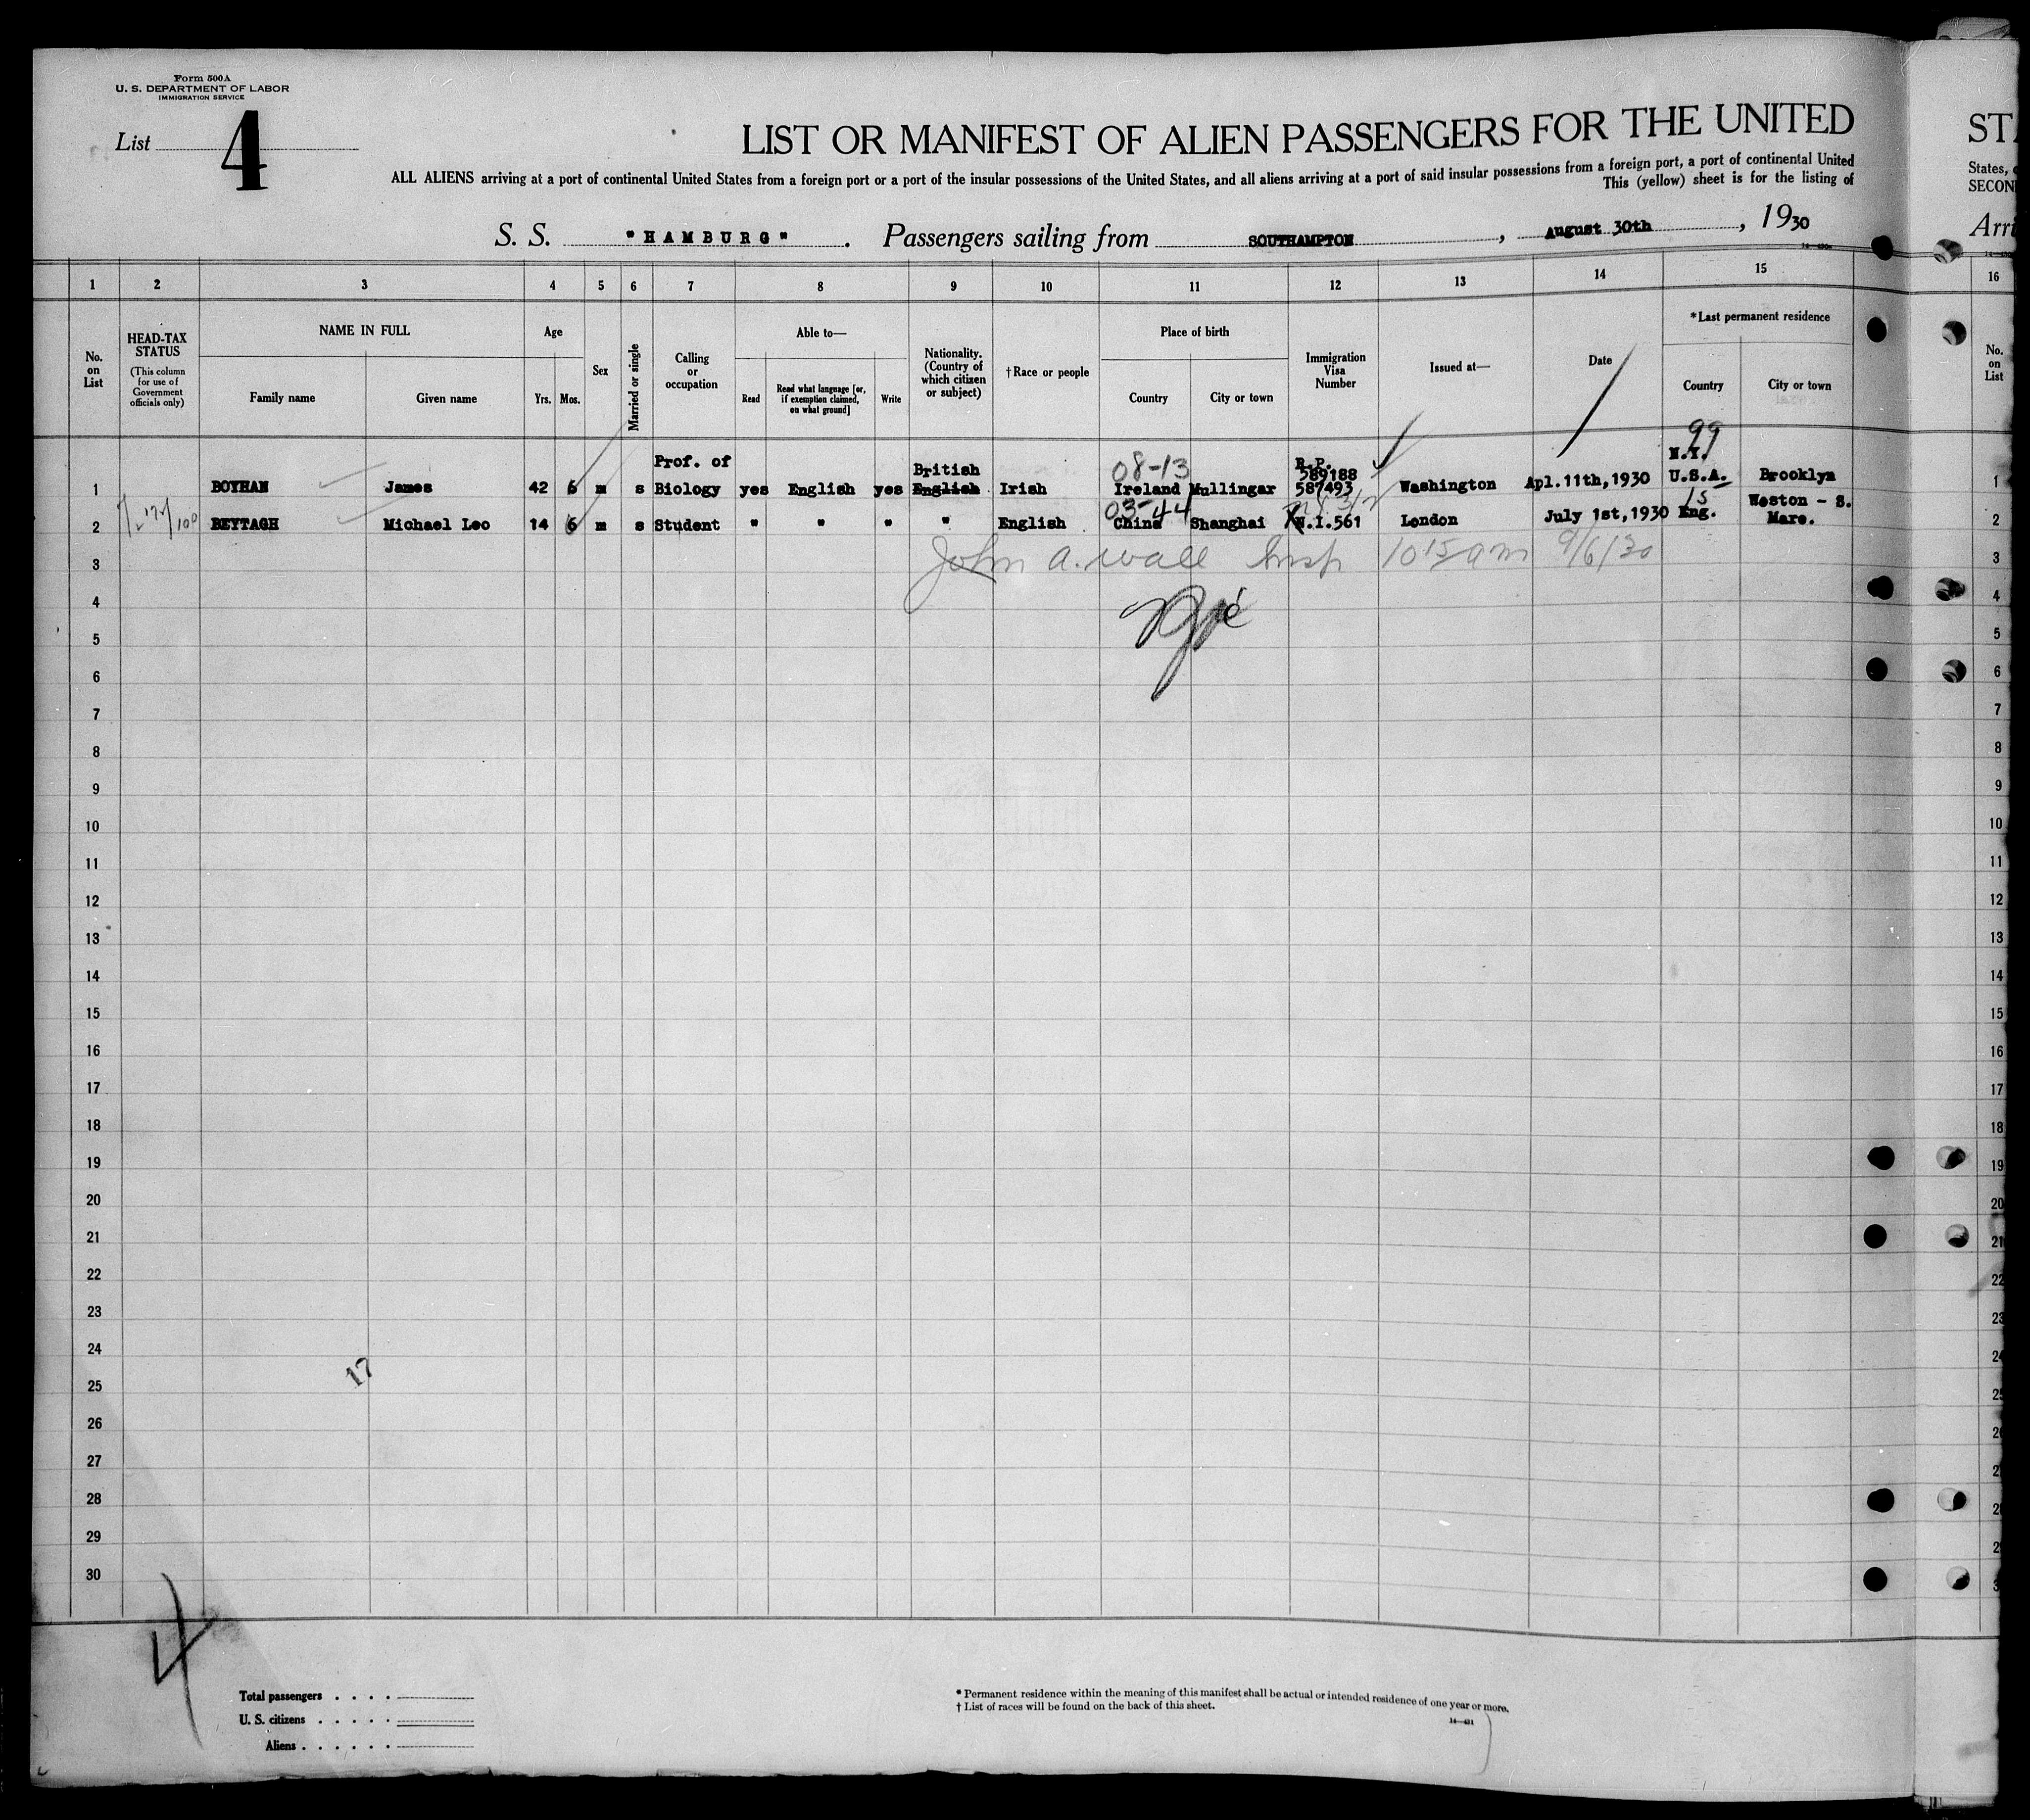 Form 500 A
U. S. DEPARTMENT OF LABOR
IMMIGRATION SERVICE
List 4
LIST OR MANIFEST OF ALIEN PASSENGERS FOR THE UNITED
ALL ALIENS arriving at a port of continental United States from a foreign port or a port of the insular possessions of the United States, and all aliens arriving at a port of said insular possessions from a foreign port, a port of continental United
This (yellow) sheet is for the listing of
S. S. "HAMBURG". Passengers sailing from SOUTHAMPTON, August 30th, 1930
STA
States,
SECON
Arri
1 2 3 4 5 6 7 8 9 10 11 12 13 14 15 16
No. on List
HEAD-TAX STATUS (This column for use of Government officials only)
NAME IN FULL
Family name Given name
Age
Yrs. Mos.
Sex
Married or single
Calling or occupation
Able to—
Read Read what language [or, if exemption claimed, on what ground] Write
Nationality. (Country of which citizen or subject)
†Race or people
Place of birth
Country City or town
Immigration Visa Number
Issued at—
Date
*Last permanent residence
Country City or town
No. on List
99
Prof. of British 08-13 R.P. N.Y.
589188
1 BOYHAN James 42 6 m s Biology yes English yes English Irish Ireland Mullingar 587493 Washington Apl. 11th, 1930 U.S.A. Brooklyn 1
03-44 15 Weston - S.
2 BEYTAGH Michael Leo 14 6 m s Student " " " " English China Shanghai N.I.561 London July 1st, 1930 Eng. Mare. 2
3 John A. Wall Insp 10 15 am 9/6/30 3
4 4
5 5
6 6
7 7
8 8
9 9
10 10
11 11
12 12
13 13
14 14
15 15
16 16
17 17
18 18
19 19
20 20
21 21
22 22
23 23
24 24
17
25 25
26
27
28
29
30
4
Total passengers
U. S. citizens
Aliens
* Permanent residence within the meaning of this manifest shall be actual or intended residence of one year or more.
† List of races will be found on the back of this sheet.
14—431